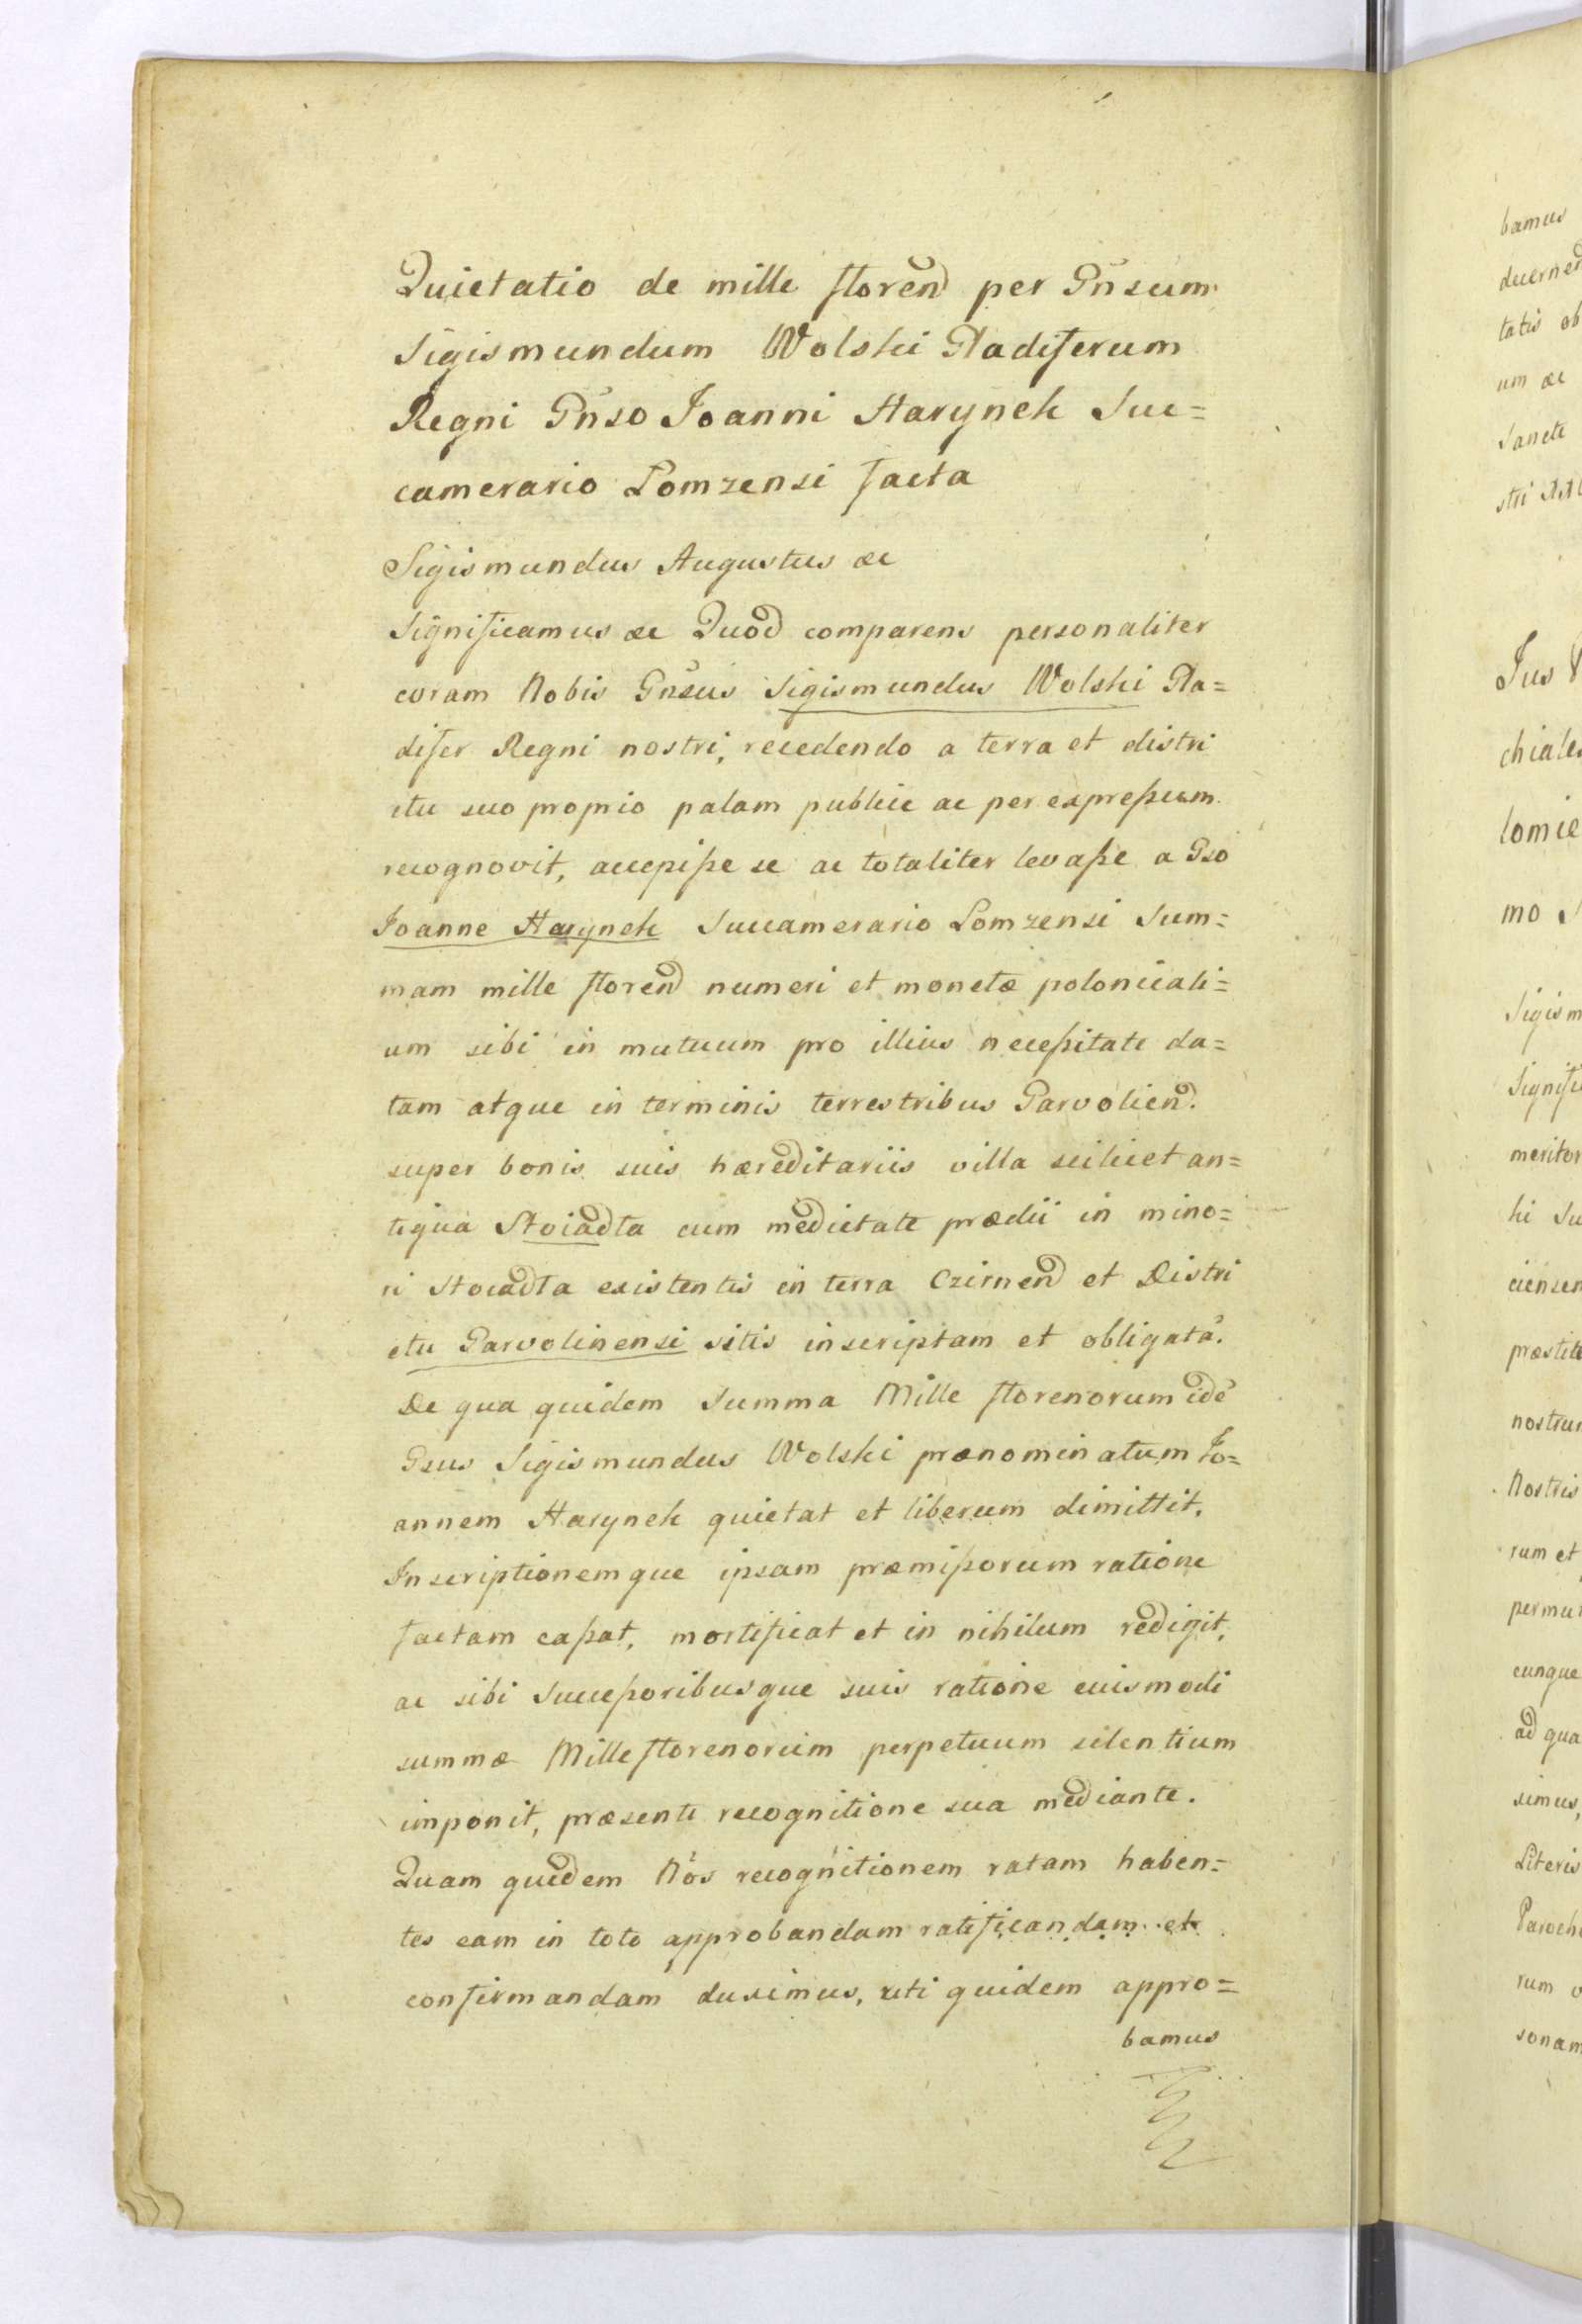 Quietatio de mille floren̄d per Gn̄sum
Sigismundum Wolski Gladiferum
Regni Gn̄so Joanni Harynek Suc=
camerario Lomzensi facta
Sigismundus Augustus &c
Significamus &c Quod comparens personaliter
coram Nobis Gn̄sus Sigismundus Wolski Gla=
difer Regni nostri, recedendo a terra et distri
ctu suo proprio palam publice ac per expreßum
recognovit, accepiße se ac totaliter levaße a Gso
Joanne Harynek Succamerario Lomzensi Sum=
mam mille floren̄d numeri et monetæ polonicali=
um sibi in mutuum pro illius neceßitate da=
tam atque in terminis terrestribus Garvoliend.
super bonis suis hæreditariis villa scilicet an=
tiqua Stoiadta cum medietate prædii in mino=
ri Stoiadta existentis in terra Czirnend et Distri
ctu Garvolinensi sitis inscriptam et obligatā.
De qua quidem Summa Mille florenorum idē
Gsus Sigismundus Wolski prænominatum Jo=
annem Harynek quietat et liberum dimittit,
Inscriptionemque ipsam præmißorum ratione
factam caßat, mortificat et in nihilum redigit,
ac sibi Succeßoribusque suis ratione euismodi
summæ Mille florenorum perpetuum silentium
imponit, præsente recognitione sua mediante.
Quam quidem Nos recognitionem ratam haben=
tes eam in toto approbandam ratificandam et
confirmandam duximus, uti quidem appro=
bamus
bamus
tatis ob
um &c
Sancte
chiales
lomie
mo
Sigism
Signifi
meritor
ki Su
ciensen
præstit
nostrum
Nostris
rum et
permut
cunque
ad qua
simus,
Literis
Paroch
rum
sonam